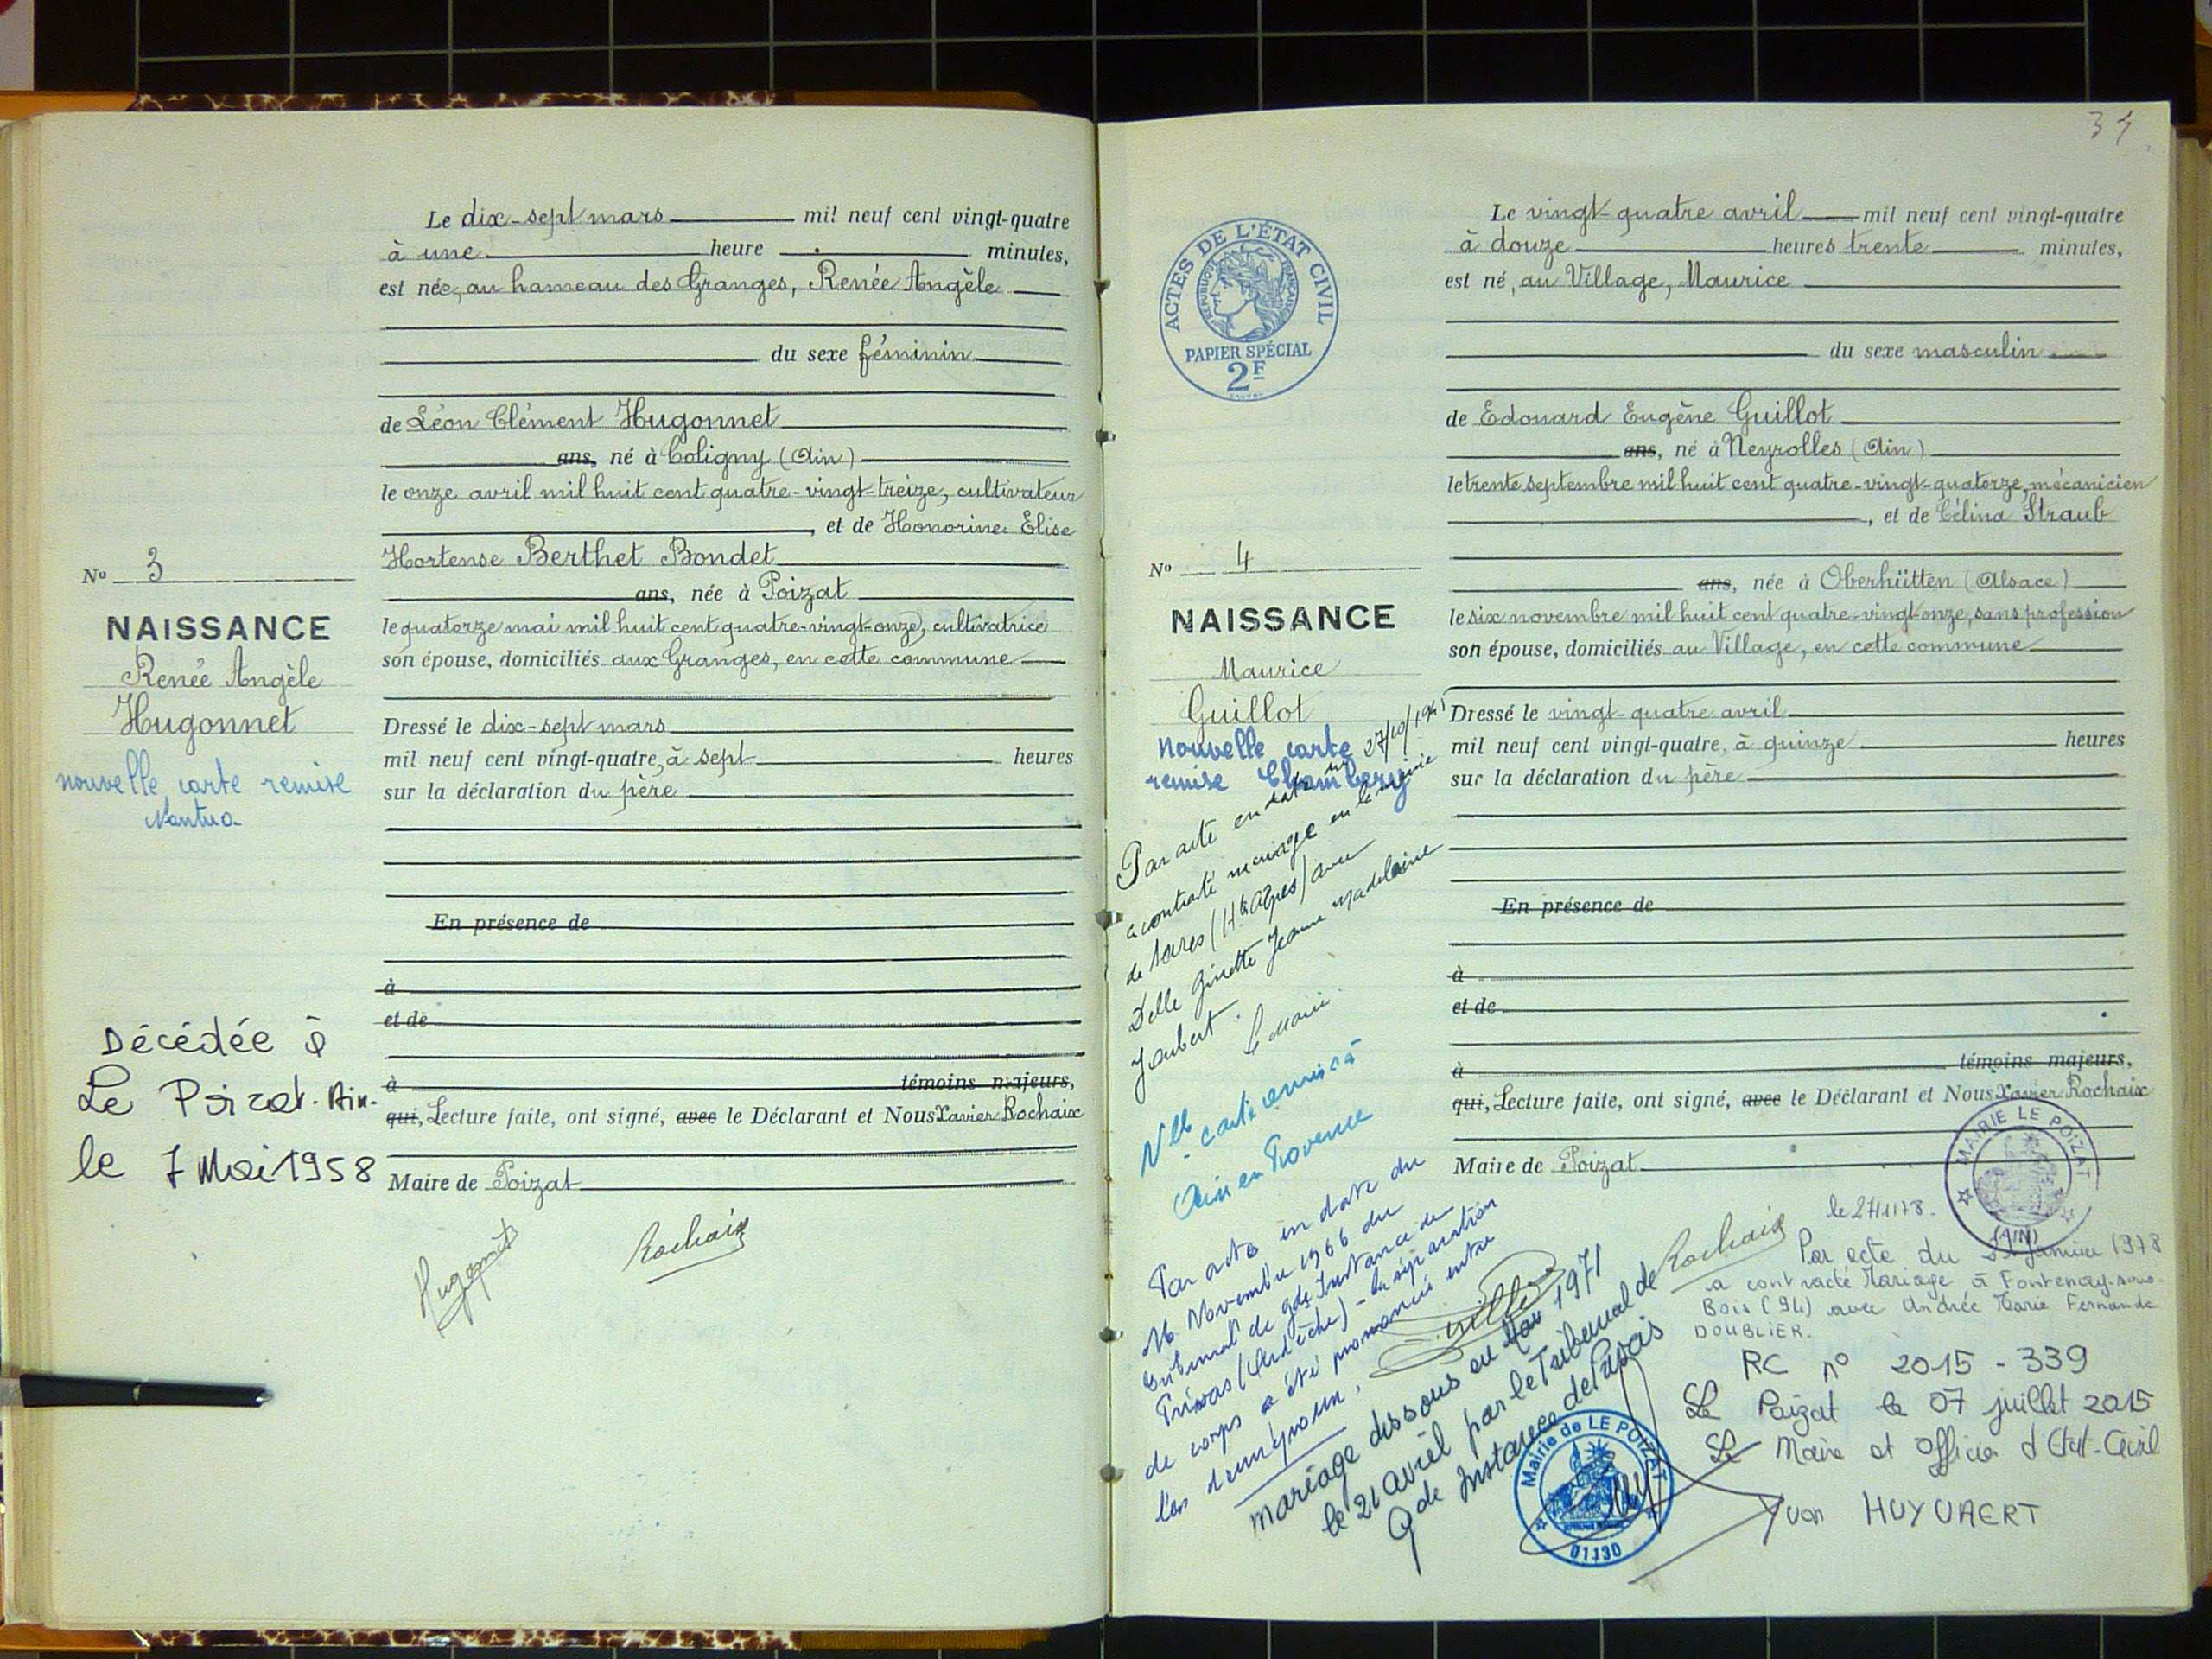 Le dix-sept mars mil neuf cent vingt-quatre
à une heure minutes,
est née, au hameau des Granges, Renée Angèle
du sexe féminin
de Léon Clément Hugonnet
ans, né à Coligny (Ain)
le onze avril mil huit cent quatre-vingt-treize, cultivateur
, et de Honorine Elise
Hortense Berthet Bondet
ans, née à Poizat
le quatorze mai mil huit cent quatre-vingt-onze, cultivatrice
son épouse, domiciliés aux Granges, en cette commune
Dressé le dix-sept mars
mil neuf cent vingt-quatre, à sept heures
sur la déclaration du père
En présence de
à
et de
à témoins majeurs,
qui, Lecture faite, ont signé, avec le Déclarant et Nous Xavier Rochaix
Maire de Poizat
Hugonnet
Rochaix
No 3
NAISSANCE
Renée Angèle
Hugonnet
nouvelle carte remise
Nantua
Décédée à
Le Poizat - Ain -
le 7 Mai 1958
34
ACTES DE L'ÉTAT CIVIL
RÉPUBLIQUE FRANÇAISE
PAPIER SPÉCIAL
2F
Le vingt-quatre avril mil neuf cent vingt-quatre
à douze heures trente minutes,
est né, au Village, Maurice
du sexe masculin
de Edouard Eugène Guillot
ans, né à Neyrolles (Ain)
le trente septembre mil huit cent quatre-vingt-quatorze, mécanicien
, et de Célina Straub
ans, née à Oberhütten (Alsace)
le six novembre mil huit cent quatre-vingt-onze, sans profession
son épouse, domiciliés au Village, en cette commune
Dressé le vingt-quatre avril
mil neuf cent vingt-quatre, à quinze heures
sur la déclaration du père
En présence de
à
et de
à témoins majeurs,
qui, Lecture faite, ont signé, avec le Déclarant et Nous Xavier Rochaix
Maire de Poizat
Rochaix
No 4
NAISSANCE
Maurice
Guillot
Nouvelle carte
remise Chambery
Par acte en date du 27/10/194
a contracté mariage en la mairie
de (Htes Alpes) avec
Delle Ginette Jeanne Madeleine
Joubert.
Le Maire
Nlle carte remise à
Aix en Provence
Par acte en date du
16 Novembre 1966 du
tribunal de gde Instance de
Privas (Ardèche) - la séparation
de corps a été prononcée entre
les
Mariage dissous en 1971
le 21 avril par le Tribunal de
Gde Instance de
MAIRIE LE POIZAT
(AIN)
le 27/1/78.
Par acte du Janvier 1978
a contracté Mariage à Fontenay-sous-
Bois (94) avec Andrée Marie Fernande
DOUBLIER.
RC n° 2015 - 339
Le Poizat le 07 juillet 2015
Le Maire et Officier d'Etat-Civil
Yvon HUYVAERT
Mairie de LE POIZAT
01130